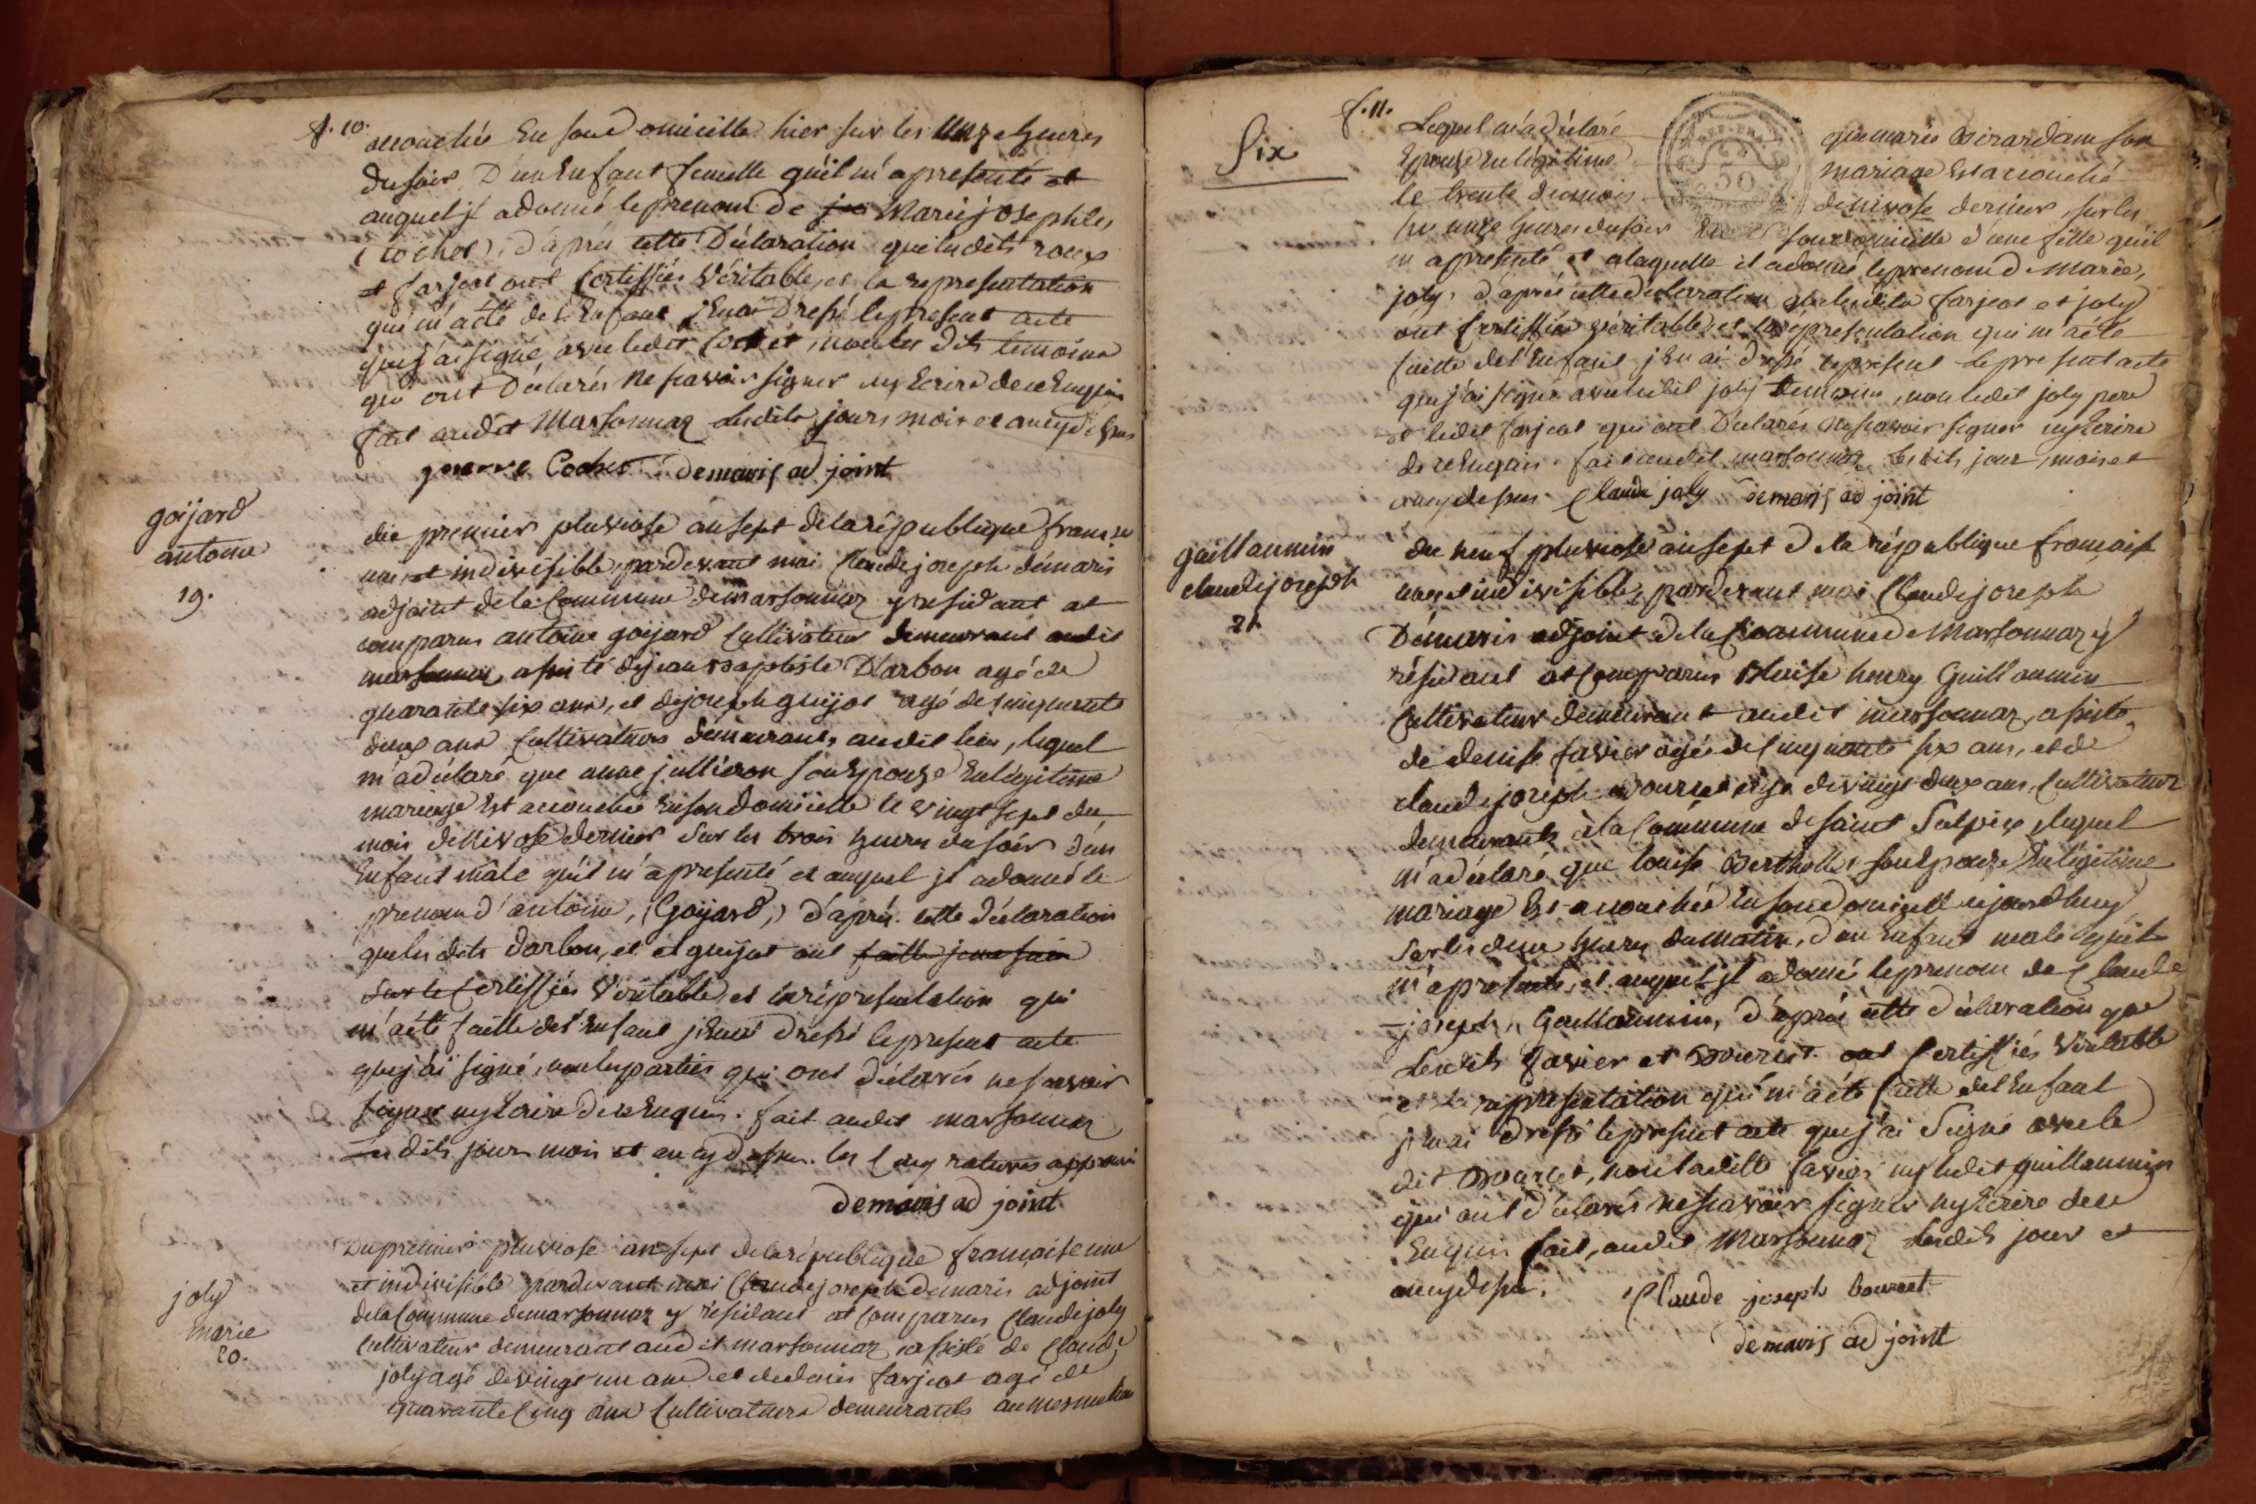 f. 10.
accouchée en son domicille hier sur les unze heures
du soir D'un Enfant femelle qu'il m'a presenté et
auquel jl a donné le prenom de Marie josephtes
(Cochet), d'après cette Déclaration que lesdits roux
et farjeot ont Certiffiés Véritable, et la representation
qui m'a été de l'Enfant j'En ai Dressé le present acte
que j'ai signé avec ledit Cochet, non les dits temoins
qui ont Déclarés Ne scavoir signer ny Ecrire de ce Enquis
fait audit Marsonnaz lesdits jours mois et an cy dessus
pierre Cochet demaris ad joint
goijard
antoine
19.
du premier pluviose an sept de la république française
une, et indivisible, pardevant moi Claude joseph démaris
adjoint de la Commune de marsonnaz y residant at
comparus antoine goijard Cultivateur demeurant audit
marsonnaz assisté de jean Baptiste Darbon agé de
quarante six ans, et de joseph guijot agé de Cinquante
deux ans Cultivateurs demeurants audit lieu, lequel
m'a déclaré que anne jullieron son Epouze En légitime
mariage Est accouchée En son Domicille le vingt sept du
mois de Nivose dernier Sur les trois heures du soir d'un
Enfant mâle qu'il m'a presenté et auquel jl a donné le
prenom d'antoine, (Goijard,) d'après cette déclaration
que les dits Darbon, et et guijot ont
Certiffiés Véritable, et la répresentation qui
m'a été faitte de l'Enfant j'En ai dressé le present acte
que j'ai signé, non les parties qui ont déclarés ne scavoir
signer ny Ecrire de ce Enquis. fait audit marsonnaz
Les dits jour mois et an cy dessus. les Cinq ratures approuvé
demaris ad joint
joly
marie
20.
Du premier pluviose an sept de la république française une
et indivisible pardevant moi Claude joseph demaris adjoint
de la Commune de marsonnaz y résidant at Comparus Claude joly
Cultivateur demeurant audit marsonnaz, assisté de Claude
joly agé de vingt un ans et de denis farjeot agé de
quarante Cinq ans Cultivateurs demeurants au mesme lieu
Six
f. 11.
Lequel m'a déclaré que marie Birardam son
Epouze En légitime mariage Est accouché
le trente du mois de nivose dernier, sur les
unze heures du soir En son domicille d'une fille qu'il
m'a presenté et a laquelle il a donné le prenom de Marie,
joly, d'après cette déclaration que lesdits farjeot et joly
ont Certiffiés véritable, et la répresentation qui m'a été
faitte de l'Enfant j'En ai dressé le present le present acte
que j'ai signé avec ledit joly temoin, non ledit joly pere
et ledit farjeot qui ont Déclarés Ne scavoir signer ny Ecrire
de ce Enquis. fait audit marsonnaz lesdits jour, mois et
an cy dessus. Claude joly demaris ad joint
guillaumin
claude joseph
21.
du neuf pluviose an sept de la république française
une et indivisible, pardevant moi Claude joseph
Démaris adjoint de la Commune de Marsonnaz y
résidant at Comparus Blaise henry Guillaumin
Cultivateur demeurant audit marsonnaz, assisté
de denise favier agée de Cinquante six ans, et de
claude joseph Bourcet agé de vingt deux ans, Cultivateur
demeurants à la Commune de saint Sulpice, lequel
m'a déclaré, que louise Berthollet son Epouze En légitime
mariage Est accouchée En son domicille aujourd'huy
sur les deux heures du matin, d'un Enfant male qu'il
m'a presenté, et auquel jl a donné le prenom de Claude
joseph, Guillaumin, d'après cette déclaration que
lesdits favier et Bourcet ont Certiffiés Véritable
et la répresentation qui m'a été faitte de l'Enfant
j'En ai dressé le present acte que j'ai Signé avec le
dit Bourcet, non laditte favier ny ledit guillaumin
qui ont déclarés ne scavoir signer ny Ecrire de ce
Enquis fait, audit Marsonnaz lesdits jour et
an cy dessus. Claude joseph bourcet
demaris ad joint